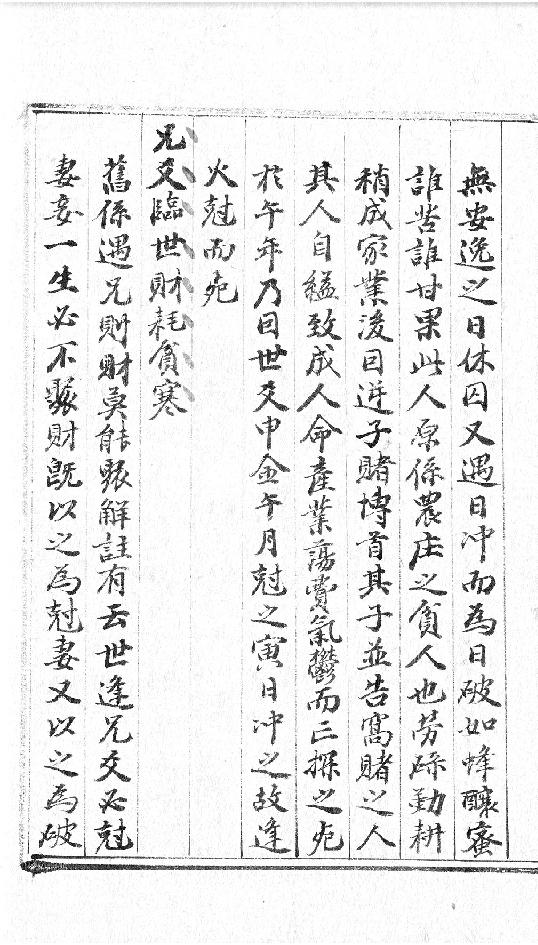 無安逸之日休囚又遇日冲而為日破如蜂釀蜜
誰苦誰甘果此人原係農庄之貧人也劳碌勤耕
稍成家業後因逆子賭博首其子並告窩賭之人
其人自縊致成人命產業蕩費氣鬱而亡探之死
於午年乃因世爻申金午月尅之寅日冲之故逢
火尅而死
兄爻臨世財耗貧寒
舊係遇兄則財莫能聚解註有云世逢兄爻必尅
妻妾一生必不聚財既以之為尅妻又以之為破